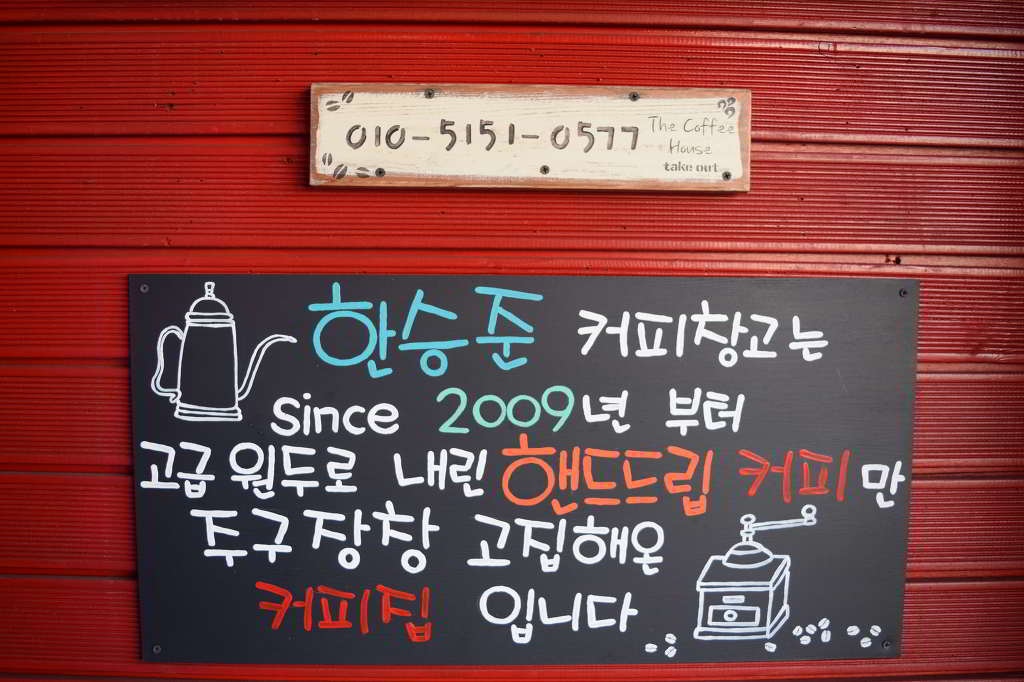 010-5151-0577
The Coffee
House
take out
한승준 커피창고는
since 2009년 부터
고급원두로 내린 핸드드립 커피만
주구장창 고집해온
커피집 입니다